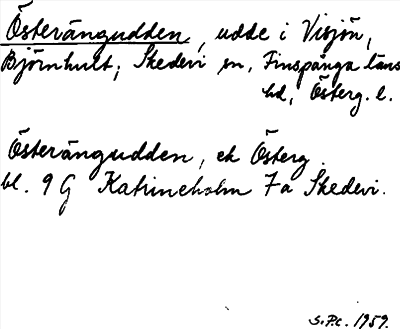 Österängudden, udde i Visjön,
Björnhult, Skedevi sn, Finspånga läns
hd, Österg. l.
Österängudden, ek Österg.
bl. 9 G Katrineholm 7a Skedevi.
S.P.C. 1959.